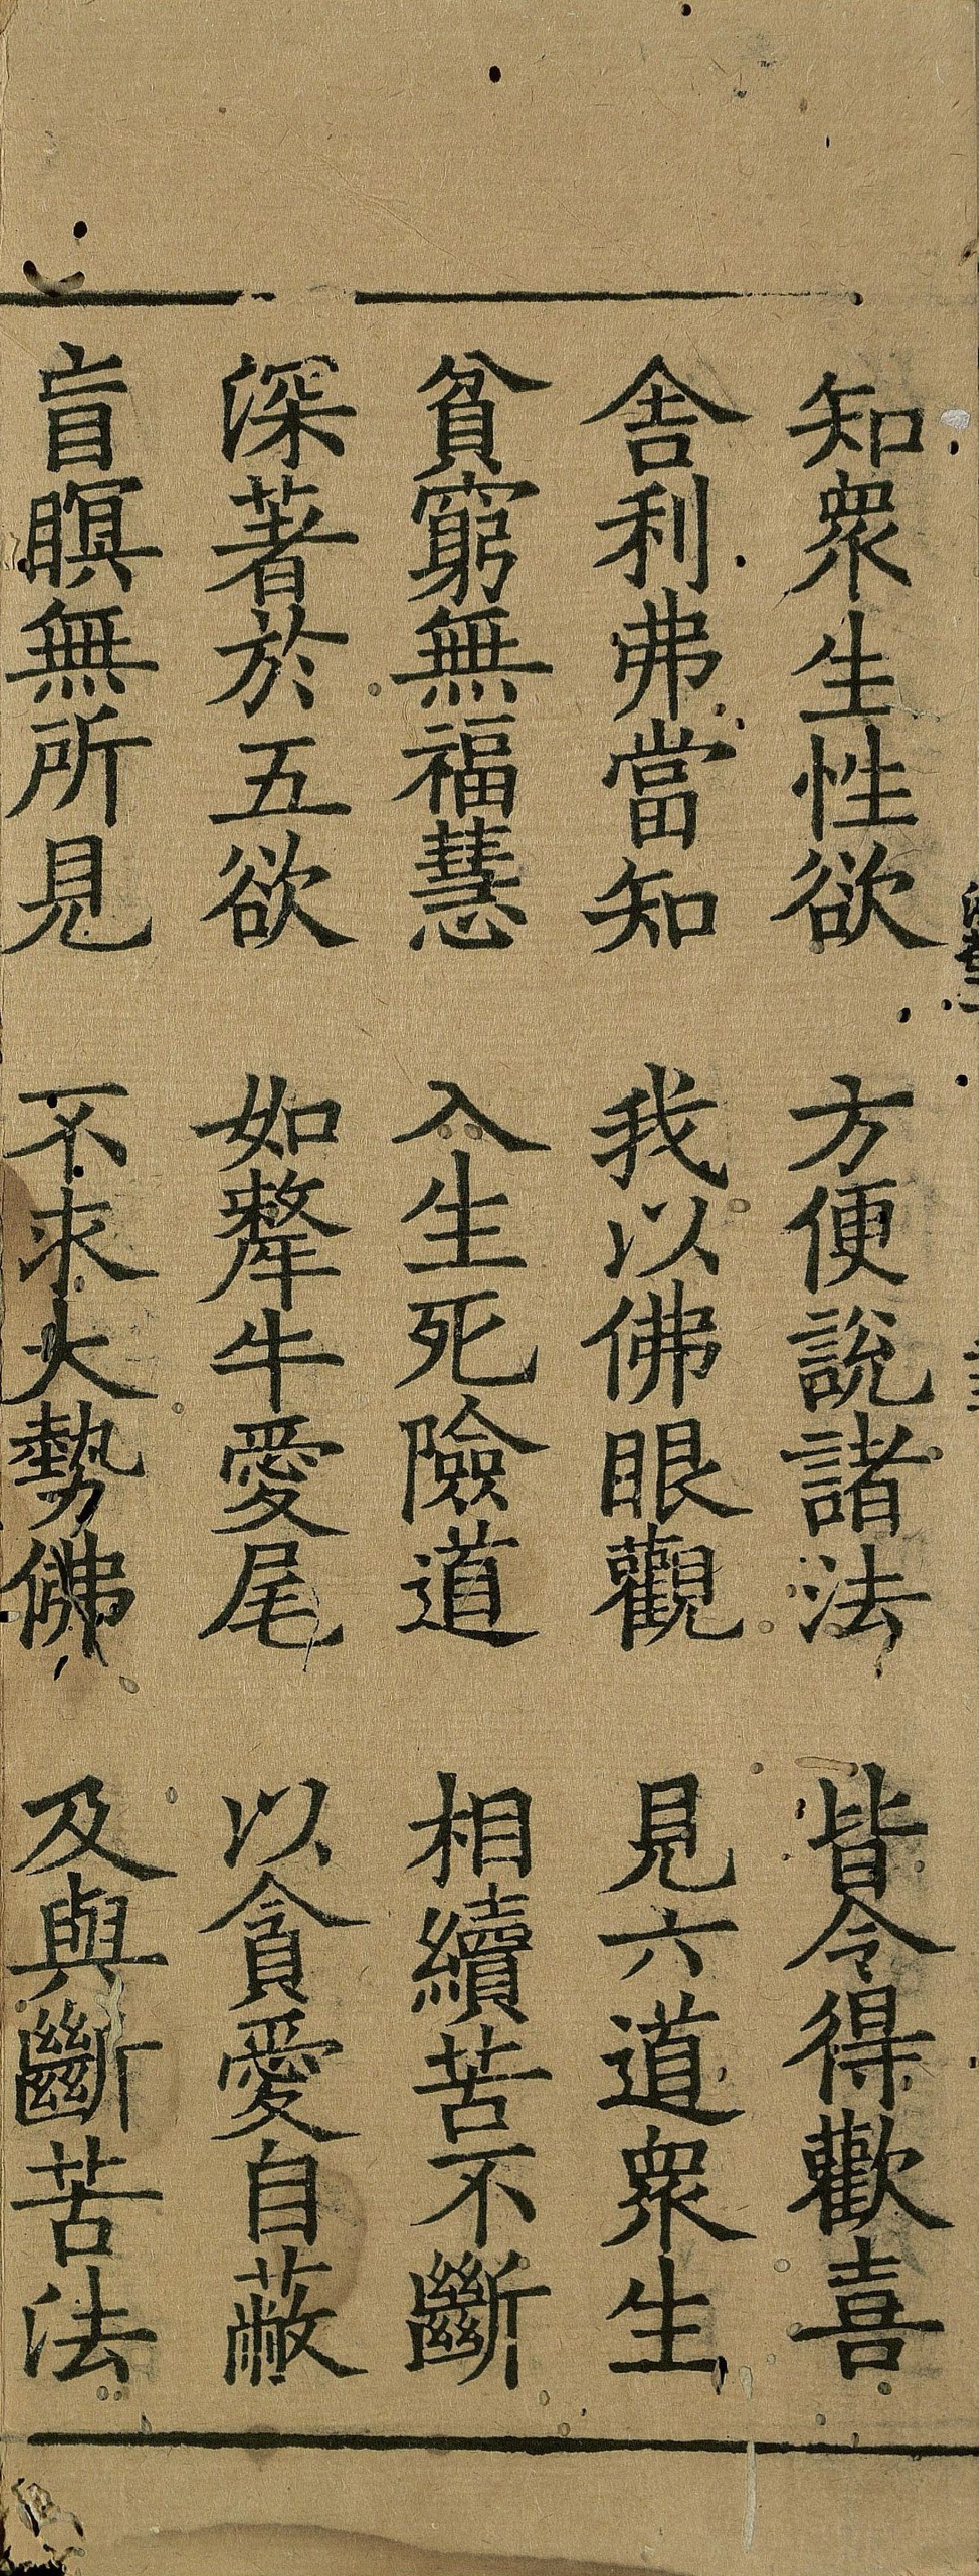 知衆生性欲　方便說諸法　皆令得歡喜
舎利弗當知　我以佛眼觀　見六道衆生
貧窮無福慧　入生死險道　相續苦不斷
深著於五欲　如犛牛愛尾　以貪愛自蔽
盲瞑無所見　不求大勢佛　及與斷苦法